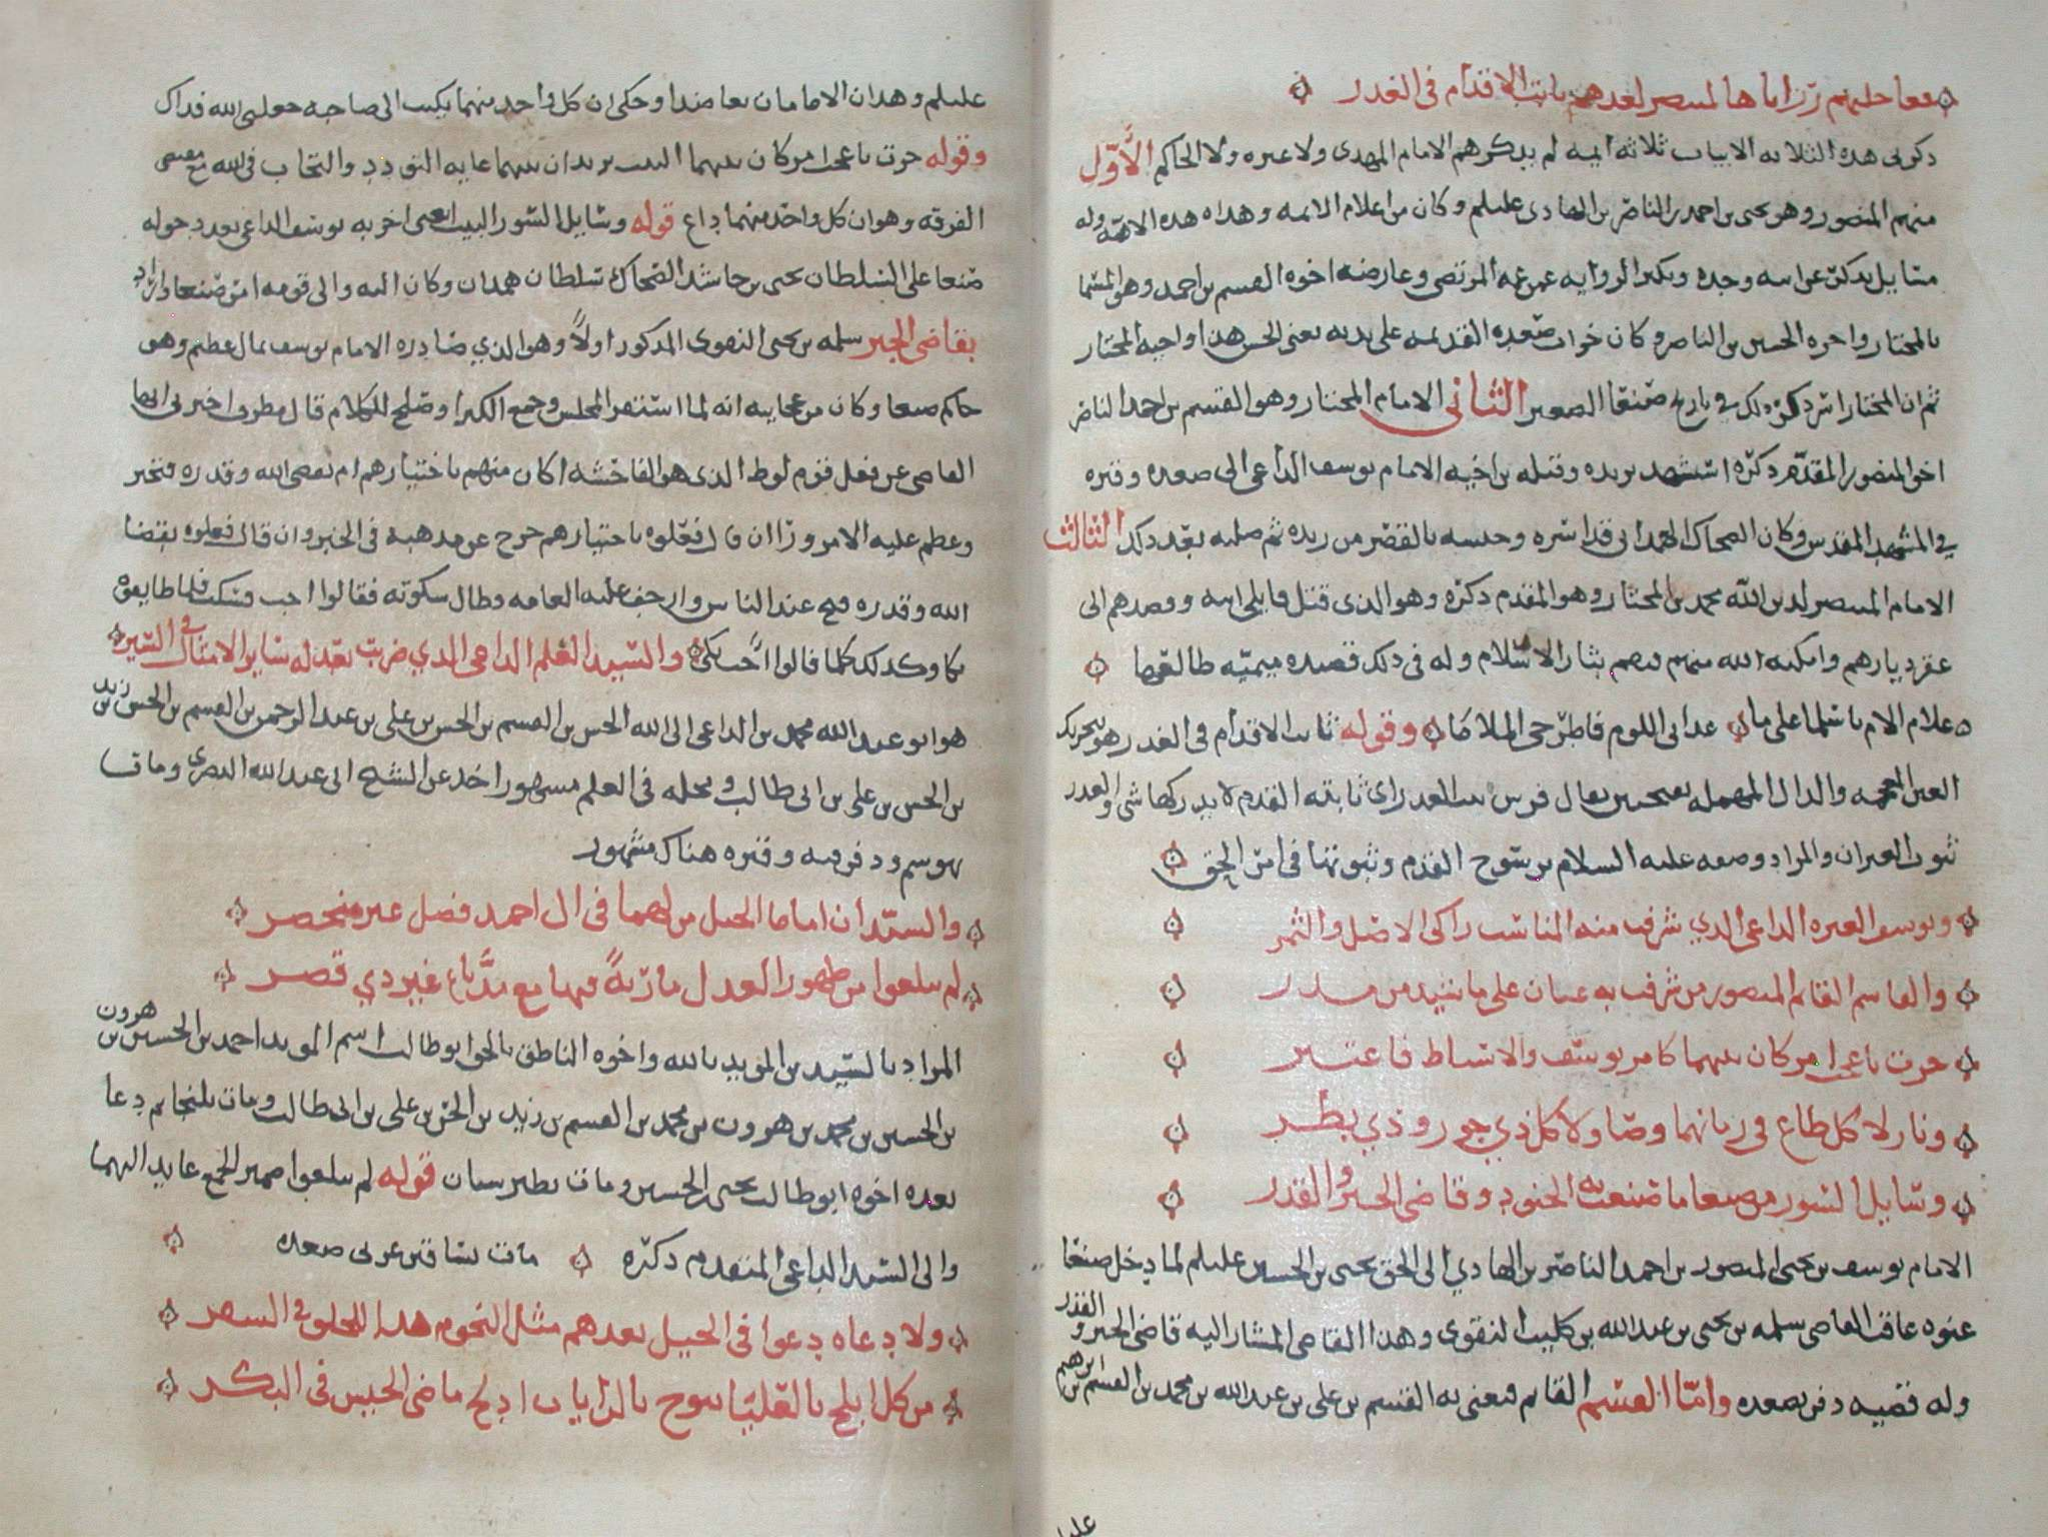 لعدهم ثابت الاقدام في الغدر
ذكر في هذه الثلاثه الابيات ثلاثه ايمه لم يذكرهم الامام المهدي ولا غيره ولا الحاكم الاول
منهم المنصور وهو يحيى بن احمد بن الناصر بن الهادي عليلم وكان من اعلام الائمه وهداه هذه الامه وله
مسايل عن ابيه وجده ويكثر الروايه عن عمه المرتضى وعارضه اخوه القسم بن احمد وهو المسما
بالمختار واخوه الحسن بن الناصر وكان خراب صعده القديمه على يديه يعني الحسن هذا واخيه المختار
ثم ان المختار اسر ذكر ذلك في تاريخ صنعا الصغير الثاني الامام المختار وهو القسم بن احمد الناصر
اخو المنصور المقدم ذكره استشهد بريده وقبله بن اخيه الامام يوسف الداعي الى صعده وقبره
في المشهد المقدس وكان الضحاك الهمداني قد اسره وحبسه بالقصر من ريده ثم بعد ذلك الثالث
الامام المنتصر لدين الله محمد بن المختار وهو المقدم ذكره وهو الذي قتل قاتلي ابيه وقصدهم الى
عقر ديارهم وامكنه الله منهم بثار الاسلام وله في ذلك قصيده ميميه طالعها
علام الام يا سلما على ما عداني اللوم فاطرحي الملاما وقوله ثابت الاقدام في الغدر هو بتحريك
الغين المعجمه والدال المهمله بفتحتين يقال فرس ثبت الغدر اي ثابته القدم لا يدركها شي والغدر
والمراد وصفه عليه السلام برسوح القدم وثبوتها في امر الحق
ويوسف العتره الداعي الذي شرفت منه المناسب زاكي الاصل والثمر
والقاسم القايم المنصور من شرفت به عيان على ما شيد من مدر
جرت باعجب امر كان بينهما كامر يوسف والاسباط فاعتبر
وثار لا كل طاغ في زمانهما وصاولا كل ذي جور وذي بطر
وسايل السور من صنعا ما صنعت به الجنود وقاضي الجبر والقدر
الامام يوسف بن يحيى المنصور بن احمد الناصر بن الهادي الى الحق يحيى بن الحسين عليلم لما دخل صنعا
عنوه عاقب القاضي سلمه بن يحيى بن عبد الله بن كليب النقوي وهذا القاضي المشار اليه قاضي الجبر والقدر
وله قضيه دفن بصعده واما القسم القايم فنعني به القسم بن علي بن عبد الله بن محمد بن القسم بن ابرهيم
عليلم وهذان الامامان تعاضدا وحكي ان كل واحد منهما يكتب الى صاحبه جعلني الله فداك
وقوله جرت باعجب امر كان بينهما البيت يريد ان بينهما غايه التودد والتحاب في الله مع مقتضى
الفرقه وهو ان كل واحد منهما داع قوله وسايل السور البيت يعني اخربه يوسف الداعي بعد دخوله
صنعا على السلطان يحيى بن حاشد الضحاك سلطان همدان وكان اليه والى قومه امر صنعا واراد
بقاضي الجبر سلمه بن يحيى النقوي المذكور اولا وهو الذي صادره الامام يوسف بمال عظيم وهو
حاكم صنعا وكان من عجايبه انه لما استقر المجلس وجمع الكبرا وصلح للكلام قال مطرفي اخبرني ايها
القاضي عن فعل قوم لوط الذي هو الفاحشه اكان منهم باختيارهم ام بقضى الله وقدره فتحير
وعظم عليه الامر وراا ان قال فعلوه باختيارهم خرج عن مذهبه في الجبر وان قال فعلوه بقضا
الله وقدره قبح عند الناس وارجف عليه العامه وطال سكوته فقالوا اجب فسكت
بكا وكذلك كلما قالوا اجب بكا والسيد العلم الداعي الذي ضربت بعدله ساير الامثال في السير
هو ابو عبد الله محمد بن الداعي الى الله الحسن بن القسم بن الحسن بن علي بن عبد الرحمن بن القسم بن الحسن بن زيد
بن الحسن بن علي بن ابي طالب ومحله في العلم مشهور اخذ عن الشيخ ابي عبد الله البصري ومات
بهوسم ودفن فيه وقبره هناك مشهور
والسيدان اماما الجيل من لهما في ال احمد فضل غير منحصر
لم يبلغوا من ظهور العدل ماربة فيها مع باع غير ذي قصر
المراد بالسيدين المويد بالله واخوه الناطق بالحق ابو طالب اسم المويد احمد بن الحسين بن هرون
بن الحسين بن محمد بن هرون بن محمد بن القسم بن زيد بن الحسن بن علي بن ابي طالب ومات بلنجا ثم دعا
بعده اخوه ابو طالب يحيى بن الحسين ومات بطبرستان قوله لم يبلغوا ضمير الجمع عايد اليهما
والى السيد الداعي المتقدم ذكره مات بساقين غربي صعده
ولا دعاه دعوا في الجيل بعدهم مثل النجوم هدا للخلق في السفر
من كل ابلج بالعليا بالرايات ادلج ماضي الخميس في البكر